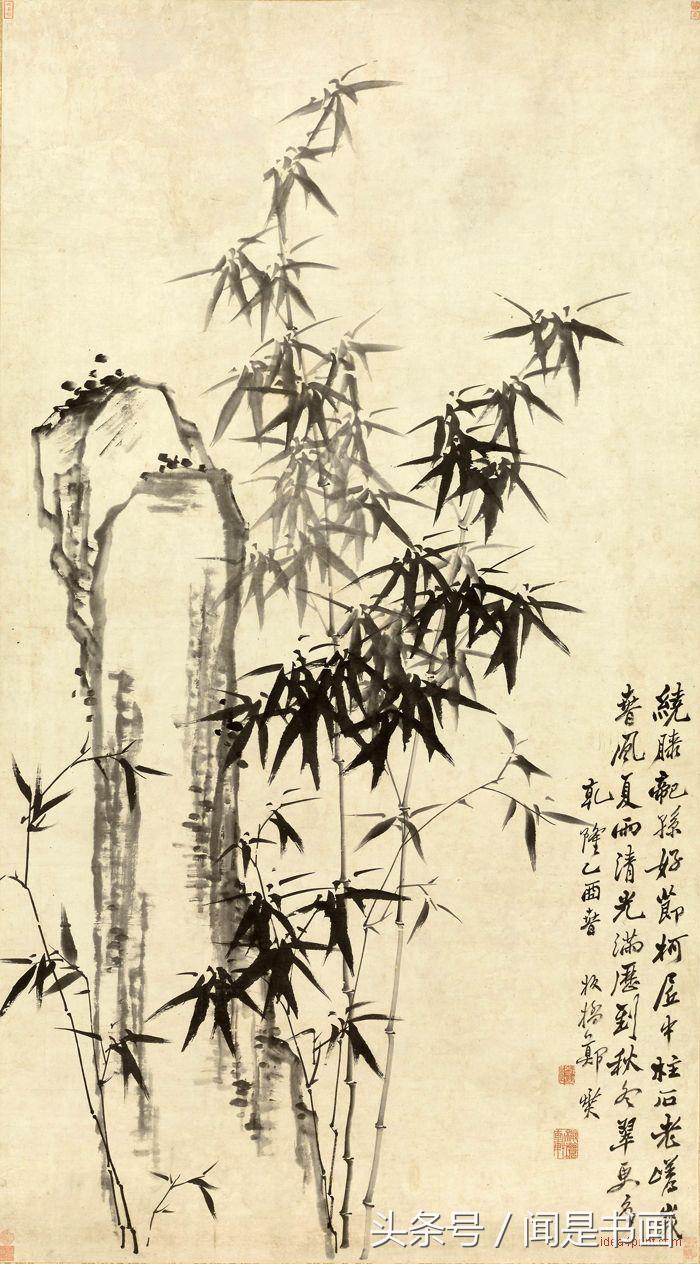 繞膝龍孫好節柯居中柱石老嵯峩
春風夏雨清光滿歷到秋冬翠更多
乾隆乙酉春 板橋鄭燮
头条号 / 闻是书画